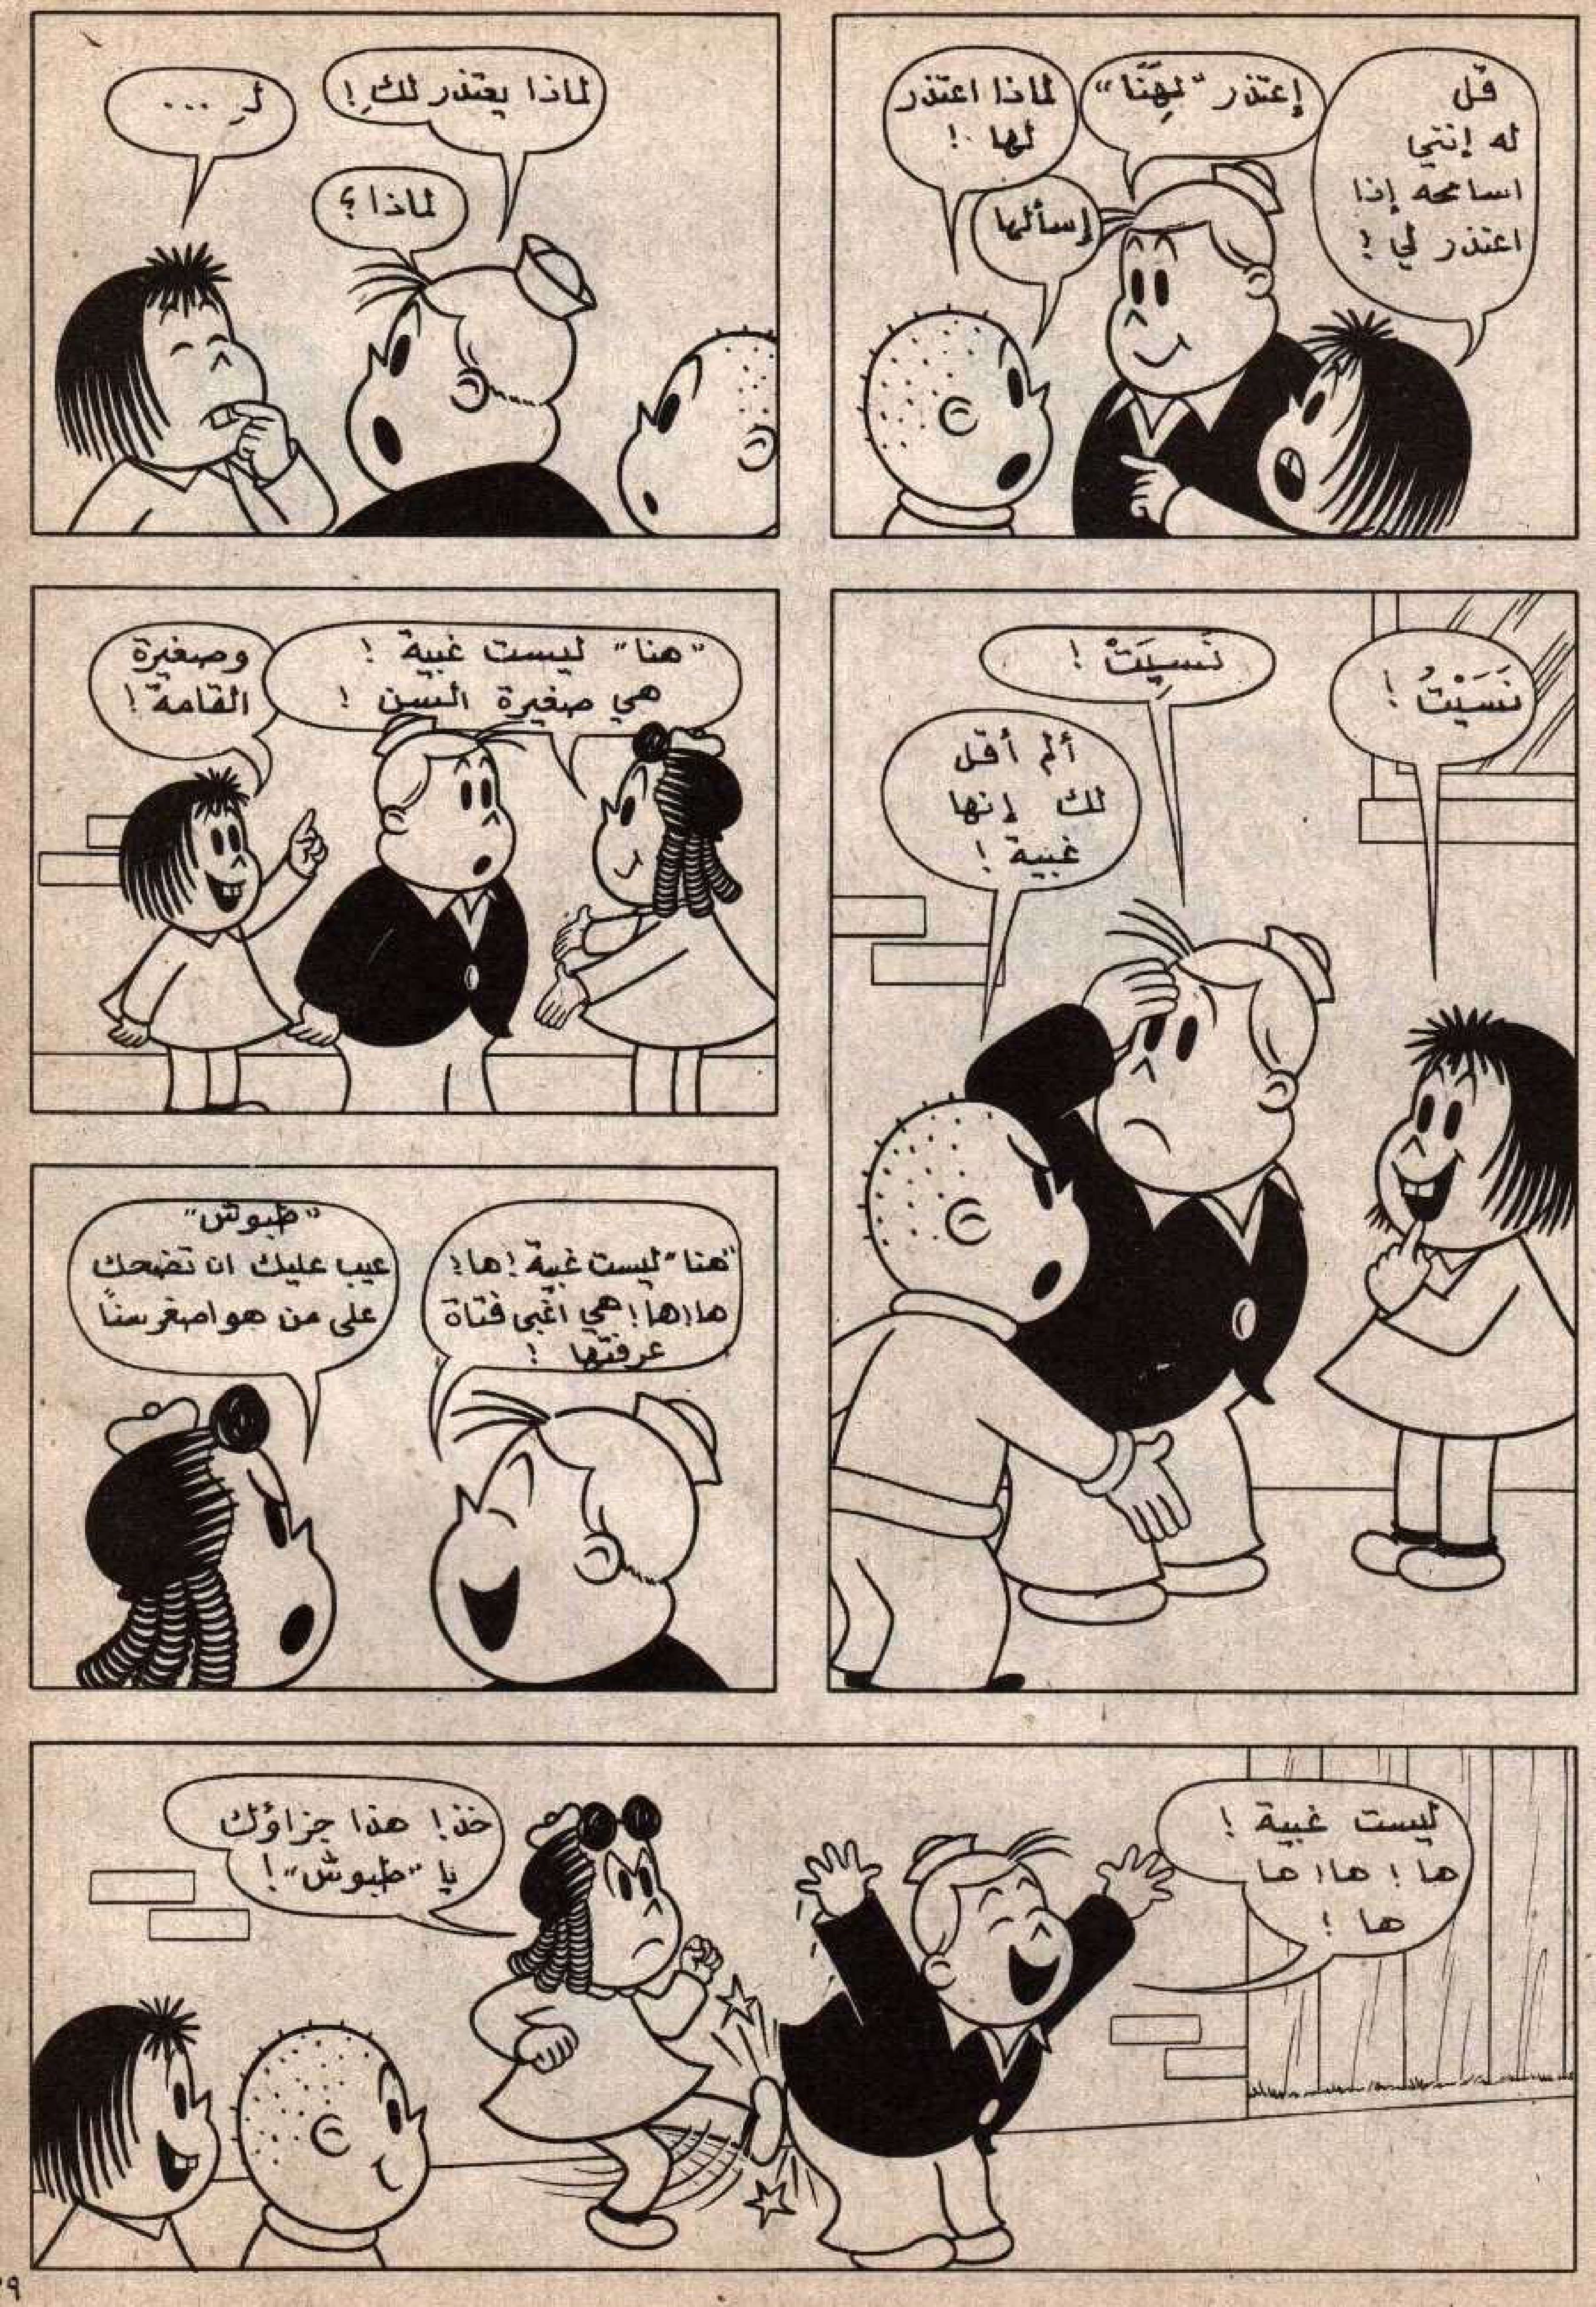 قل
له إنني
اسامحه إذا
اعتذر لي !
إعتذر "لِهَنّا"
لماذا اعتذر
لها !
إسألها
لماذا يعتذر لكِ !
لماذا ؟
لِـ ...
نَسَيْتُ !
نَسِيَتْ !
ألم أقل
لك إنها
غبية !
"هنا" ليست غبية !
هي صغيرة السن !
وصغيرة
القامة !
"هنا" ليست غبية ! ها !
ها ! ها ! هي اغبى فتاة
عرفتها !
"طبوش"
عيب عليك ان تضحك
على من هو اصغر سناً
ليست غبية !
ها ! ها ! ها
ها !
خذ ! هذا جزاؤك
يا "طبوش" !